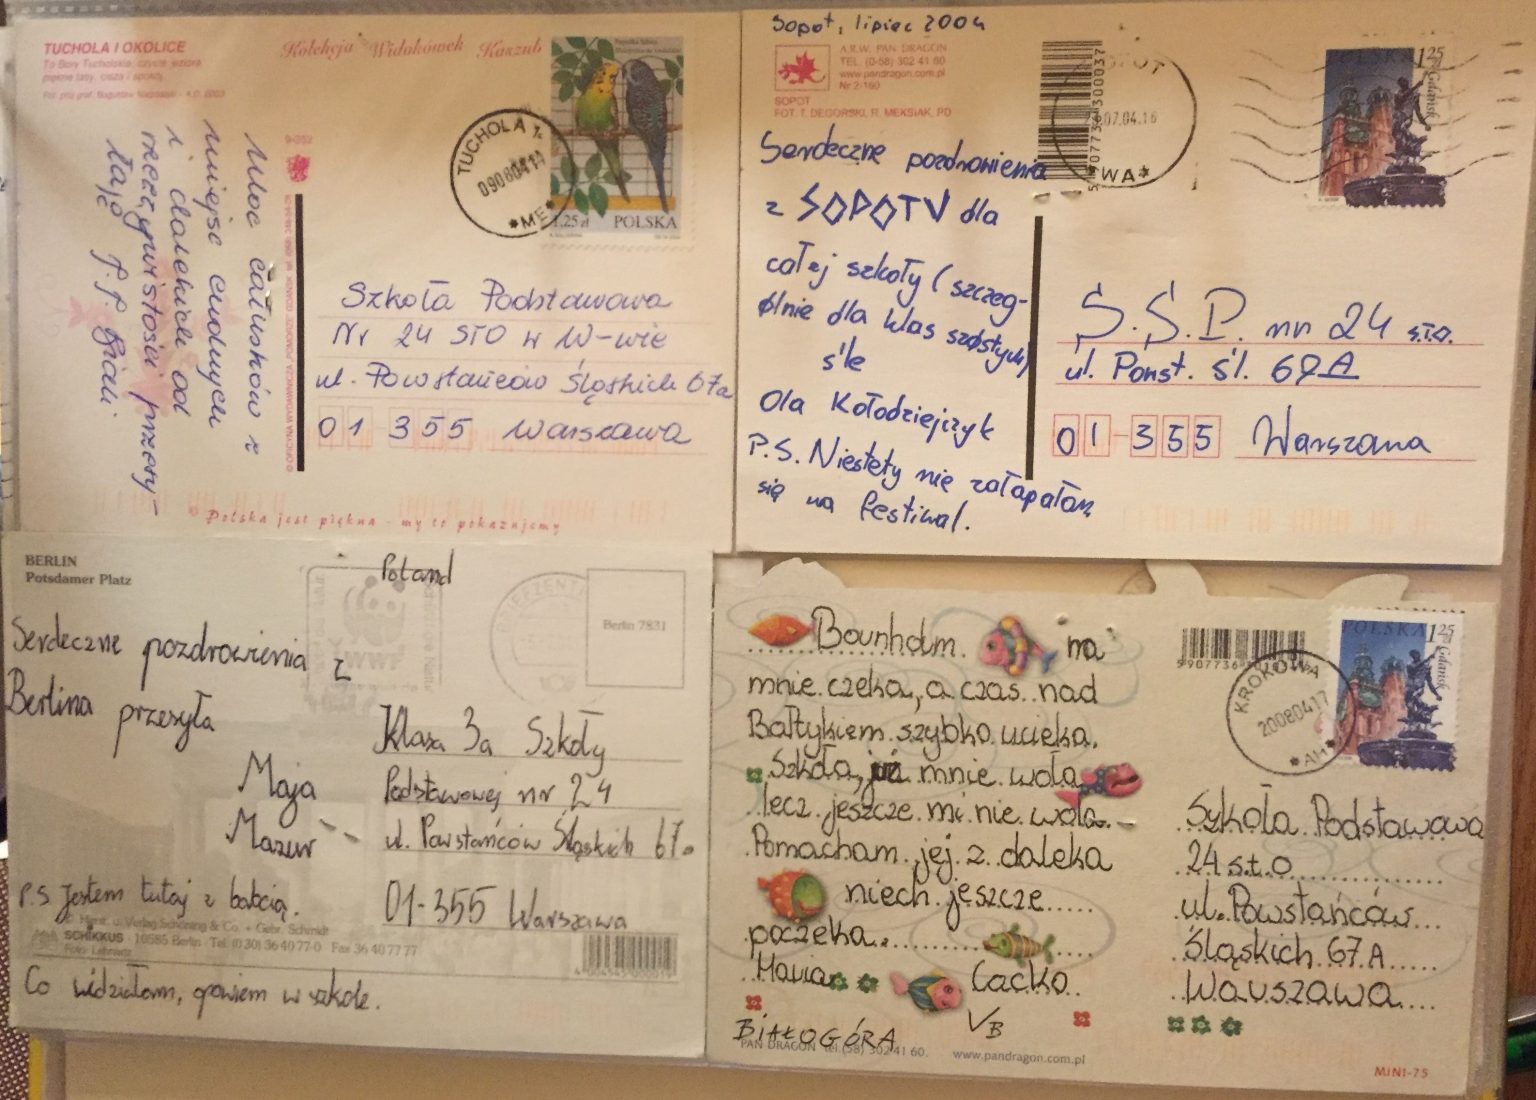 TUCHOLA I OKOLICE
To Bory Tucholskie, czyste jeziora,
piękne lasy, cisza i spokój.
Kolekcja Widokówek Kaszub
TUCHOLA 1
090804 14
*ME*
1,25 zł POLSKA
Moc całusków z
miejsc cudnych
i dalekich od
rzeczywistości przesy-
łają
Szkoła Podstawowa
Nr 24 STO w W-wie
ul. Powstańców Śląskich 67a
01-355 Warszawa
Polska jest piękna - my to pokazujemy
Sopot, lipiec 2004
A.R.W. PAN DRAGON
TEL. (0-58) 302 41 60
www.pandragon.com.pl
Nr 2/160
SOPOT
FOT. T. DEGÓRSKI, R. MEKSIAK, PD
07.04.16
WA*
1,25
Gdańsk
Serdeczne pozdrowienia
z SOPOTU dla
całej szkoły (szczeg-
ólnie dla klas szóstych)
śle
Ola Kołodziejczyk
P.S. Niestety nie załapałam
się na festiwal.
S.S.P. nr 24 s.t.o.
ul. Powst. Śl. 67A
01-355 Warszawa
BERLIN
Potsdamer Platz
Poland
WWF
Berlin 7831
Serdeczne pozdrowienia z
Berlina przesyła
Maja
Mazur
P.S. Jestem tutaj z babcią.
Co widziałam, opowiem w szkole.
Klasa 3a Szkoły
Podstawowej nr 24
ul. Powstańców Śląskich 67a
01-355 Warszawa
Horst u. Verlag Schöning & Co. + Gebr. Schmidt
SCHIKKUS · 10585 Berlin · Tel. (030) 36 40 77-0 Fax 36 40 77 77
Bournholm na
mnie czeka, a czas nad
Bałtykiem szybko ucieka.
Szkoła, już mnie woła
lecz jeszcze mi nie woła.
Pomacham jej z daleka
niech jeszcze
poczeka.
Maria Cacko
VB
BIAŁOGÓRA
PAN DRAGON tel.(58) 302 41 60. www.pandragon.com.pl
MINI-75
POLSKA 1,25
Gdańsk
KROKOWA
200804 17
*AH*
Szkoła Podstawowa
24 s.t.o
ul. Powstańców
Śląskich 67A
Warszawa